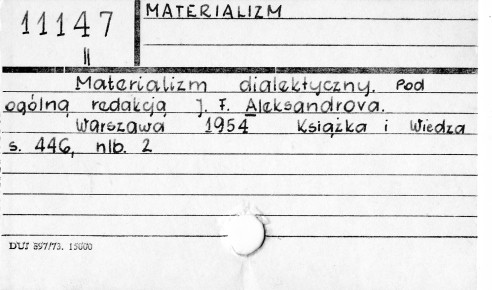 11147
II
MATERIALIZM
Materializm dialektyczny. Pod
ogólną redakcją J. F. Aleksandrova.
Warszawa 1954 Książka i Wiedza
s. 446, nlb. 2
DUJ 897/73. 15000